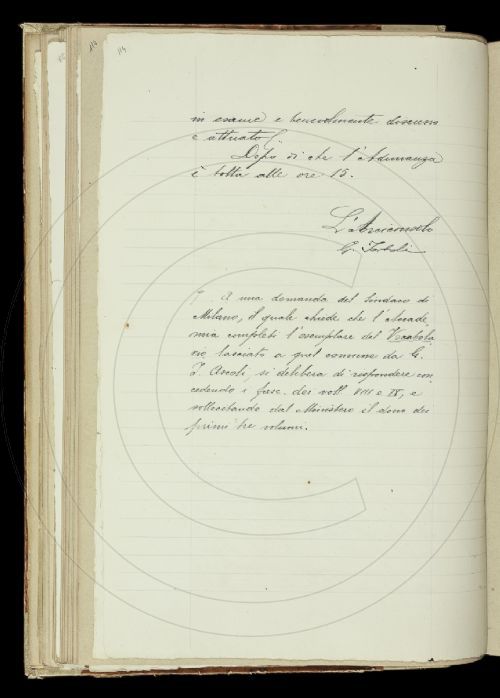 114
in esame e benevolmente discusso
e attuato (.
Dopo di che l'Adunanza
è tolta alle ore 15.
L'Arciconsolo
G. Tortoli
(. A una domanda del Sindaco di
Milano, il quale chiede che l'Accade
mia completi l'esemplare del Vocabola
rio lasciato a quel comune da G.
I. Ascoli, si delibera di rispondere con
cedendo i fasc. dei voll. VIII e IX, e
sollecitando dal Ministero il dono dei
primi tre volumi.